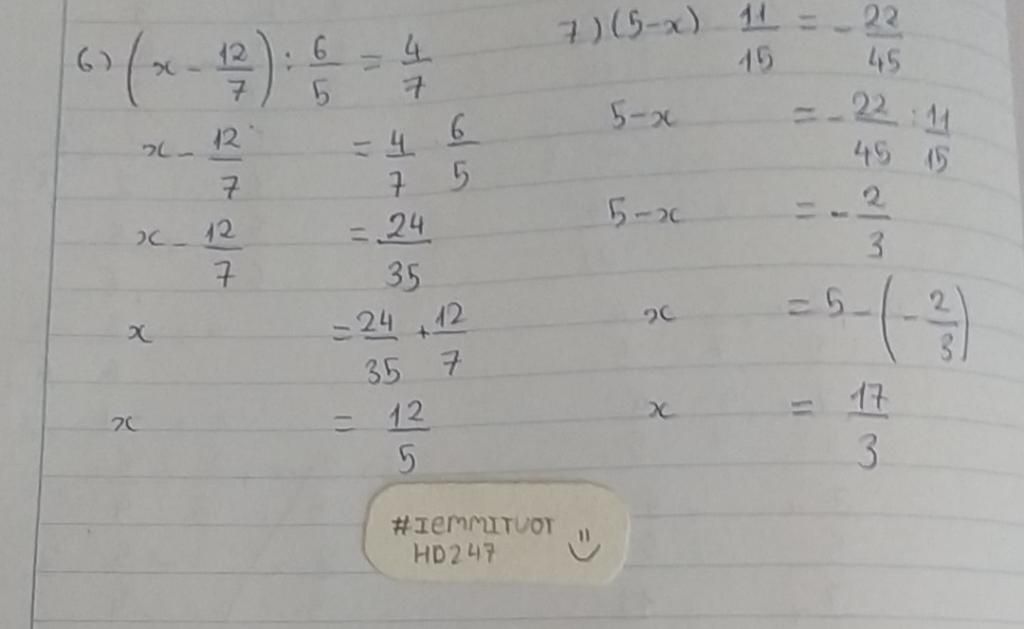 6) (x - 12/7) : 6/5 = 4/7
x - 12/7 = 4/7 6/5
x - 12/7 = 24/35
x = 24/35 + 12/7
x = 12/5
7) (5-x) 11/15 = - 22/45
5-x = - 22/45 : 11/15
5-x = - 2/3
x = 5 - (- 2/3)
x = 17/3
#IEMMITUOT
HD247